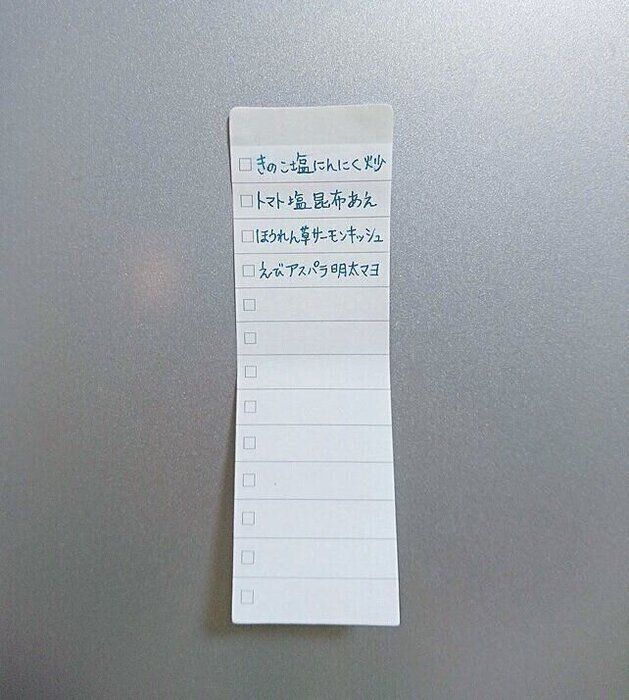 □きのこ塩にんにく炒
□トマト塩昆布あえ
□ほうれん草サーモンキッシュ
□えびアスパラ明太マヨ